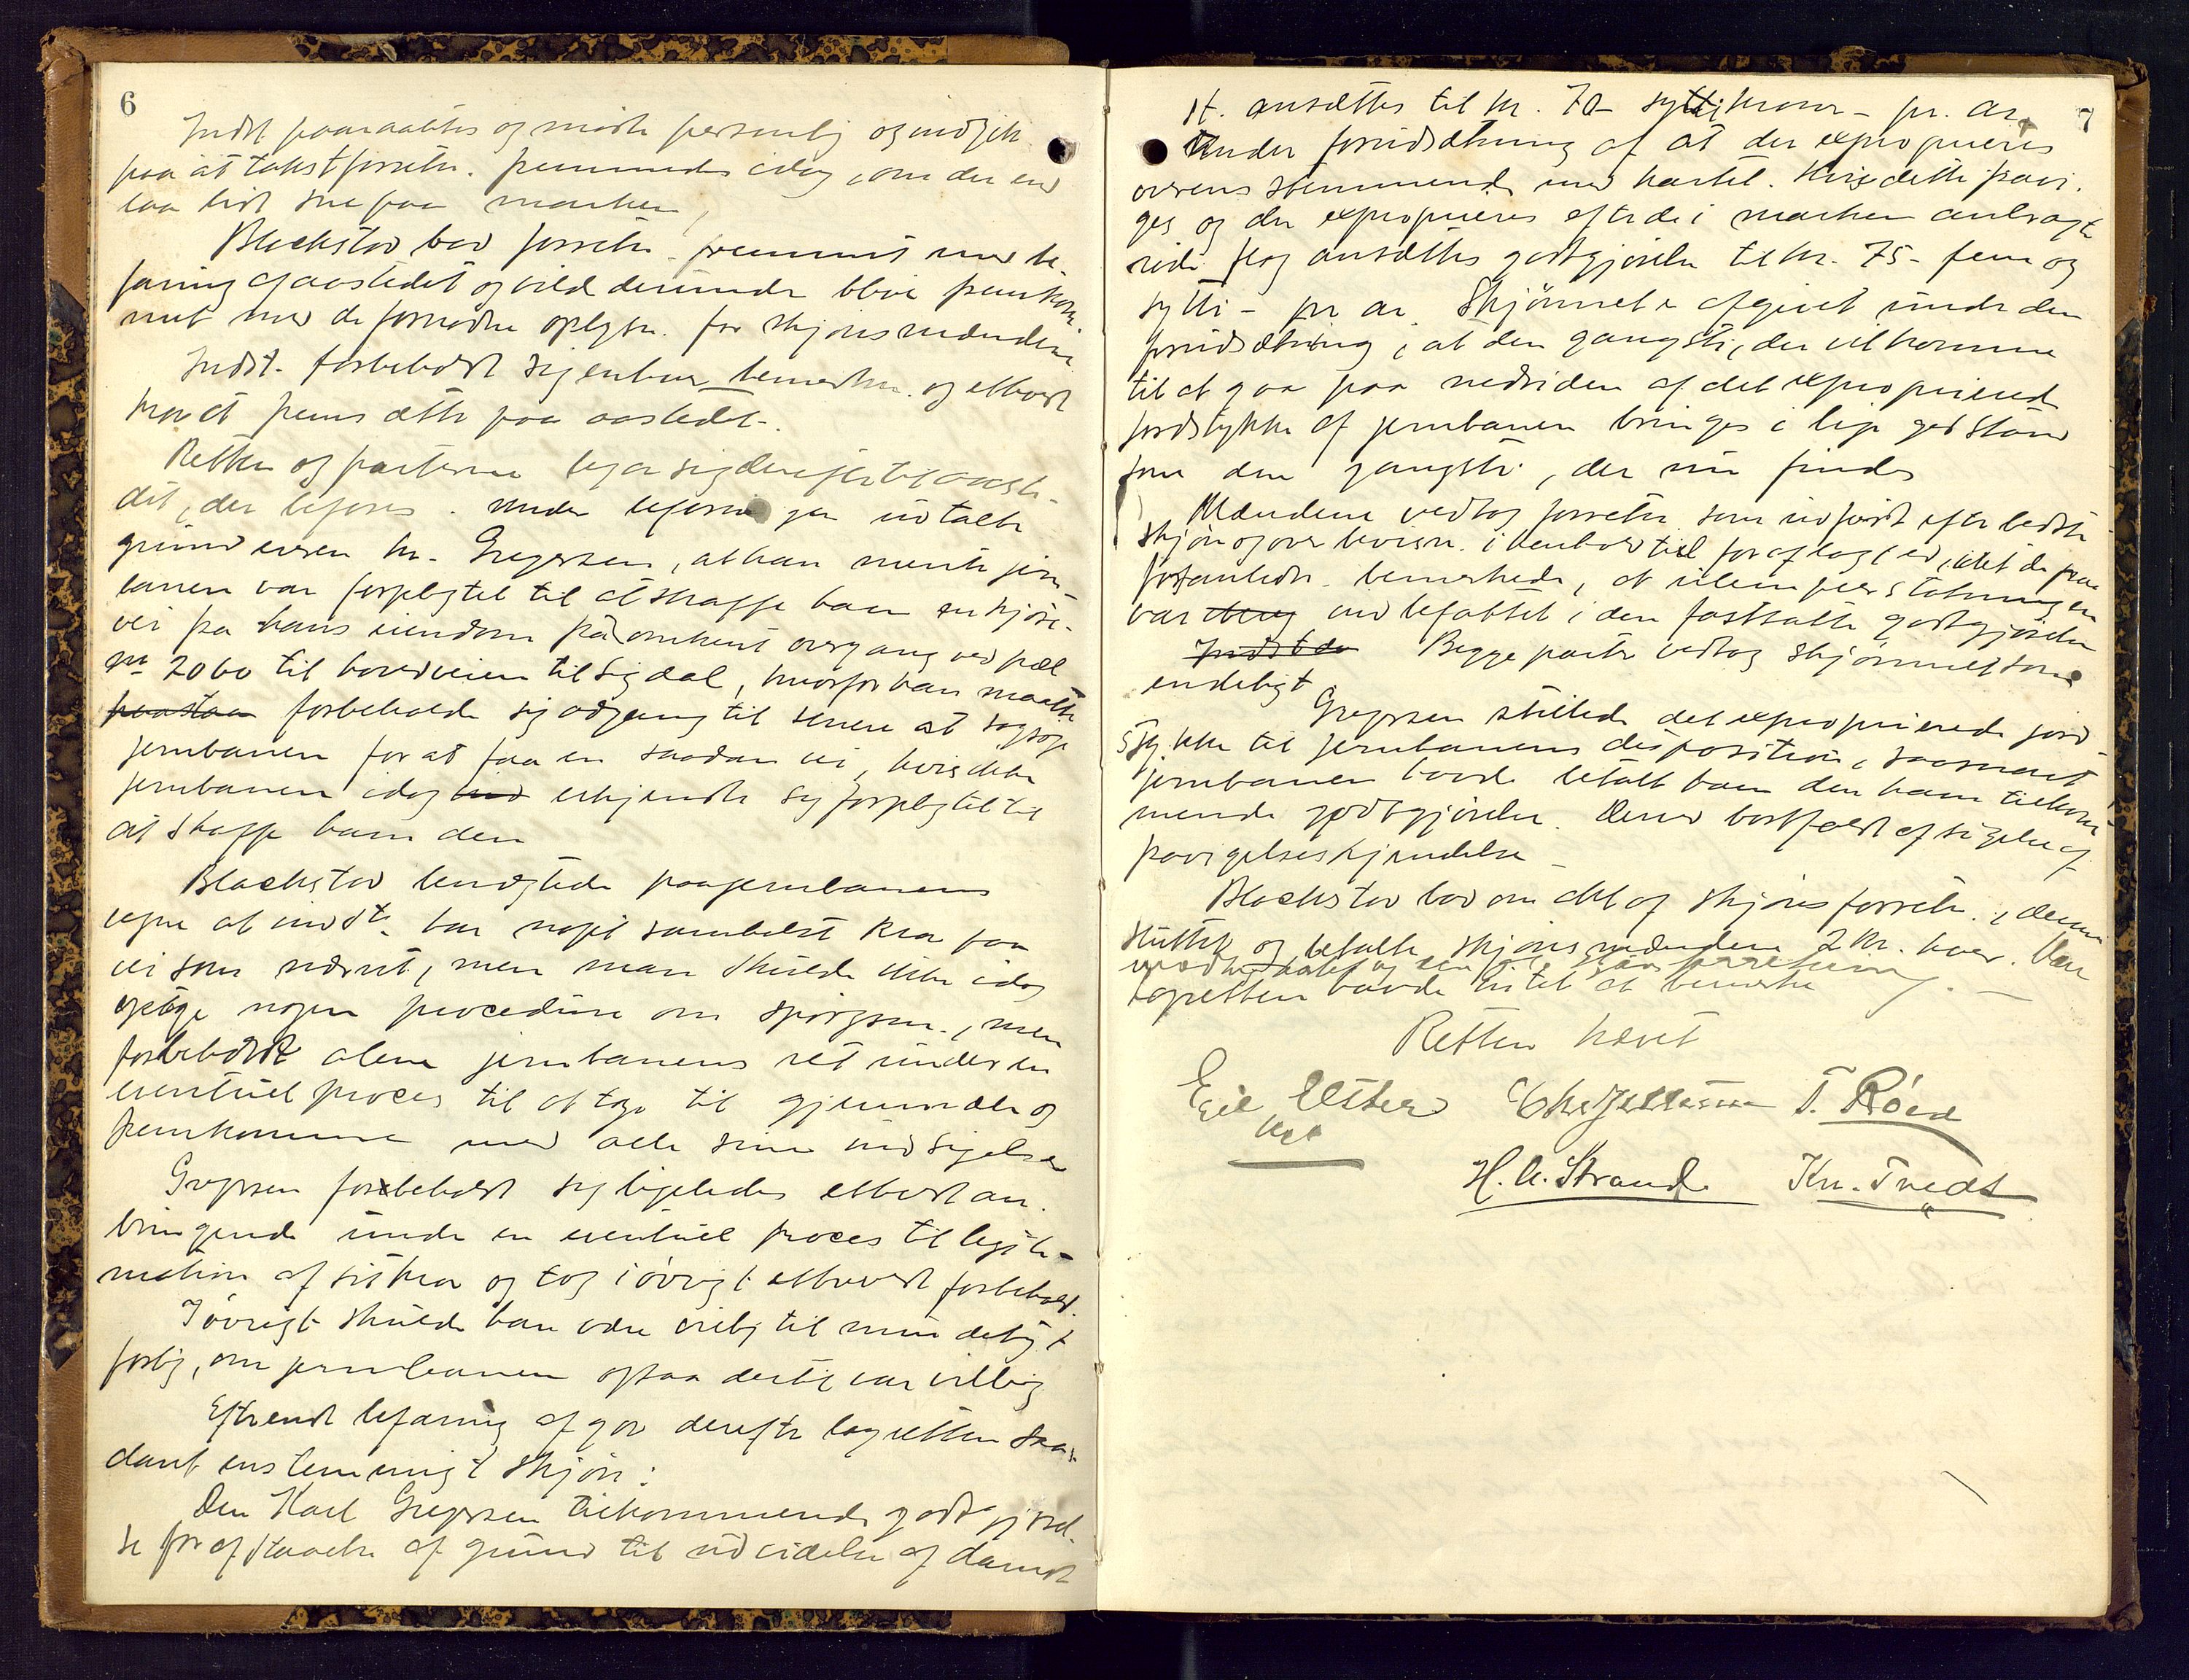 6
Indst. paaraabtes og mødte personlig og indgik
paa at takstforretn. fremmedes idag, om der end
laa lidt sne paa marken,
Blackstad bad forretn. fremmet med be-
faring af aastedet og vilde derunder blive fremkom-
met med de fornødne oplysn. for skjønsmændene
Indst. forbeholdt sig enhver bemerkn. og ethvert
krav at fremsætte paa aastedet.
Retten og parterne begav sig derefter til aaste-
det, der befores. Under befaringen udtalte
grundeieren hr. Gregersen, at han mente jern-
banen var forpligtet til at skaffe ham en kjøre-
vei fra hans eiendom på omkent overgang ved pæl
nr 2060 til hovedveien til Sigdal, hvorfor han maatte
paastaa forbeholde sig adgang til senere at sagsøge
jernbanen for at faa en saadan vei, hvis ikke
jernbanen idag erkjendte sig forpligtet til
at skaffe ham den
Blackstad benegtede paa jernbanens
vegne at indst. har noget somhelst krav paa
vei som nævnt, men man skulde ikke idag
optage nogen procedure om spørgsm., men
forbeholdt alene jernbanens ret under en
eventuel proces til at tage til gjenmæle og
fremkomme med alle sine indsigelser
Gregersen forbeholdt sig ligeledes ethvert an-
bringende under en eventuel proces til legiti-
mation af sit krav og tog iøvrigt ethvert forbehold.
Iøvrigt skulde han være villig til mindeligt
forlig, om jernbanen ogsaa dertil var villig
Efter endt befaring afgav derefter lagretten saa-
dant enstemmigt skjøn:
Den Karl Gregersen tilkommende godtgjørel-
se for afstaaelse af grund til udvidelse af Åmot
7
st. ansættes til kr. 70 - sytti kroner - pr. ar,
under forudsætning af at der exproprieres
overensstemmende med kartet. Hvis dette fravi-
ges og der exproprieres efter de i marken anbragte
røde flag ansættes godtgjørelsen til kr. 75 - fem og
sytti - pr ar. Skjønnet er afgivet under den
forudsætning, at den gangsti, der vil komme
til at gaa paa nedsiden af det exproprierede
jordstykke af jernbanen bringes i lige god stand
som den gangsti, der nu findes
Mændene vedtog forretn. som udført efter bedste
skjøn og overbevisn. i henhold til før aflagt ed, idet de paa
foranledn. bemerkede, at ulempeerstatningen
var indbefattet i den fastsatte godtgjørelse
Begge parter vedtog skjønnet som
endeligt
Gregersen stillede det exproprierede jord-
stykke til jernbanens disposition, saasnart
jernbanen havde betalt ham den ham tilkom-
mende godtgjørelse. Derved bortfaldt afsigelse af
fravigelseskjendelse
Blackstad bad om akt af skjønsforretn., denne
sluttet og betalte skjønsmændene 2 kr. hver. Han
lagretten havde intet at bemerke
Retten hævet
H. A. Strand Kn. Tvedt